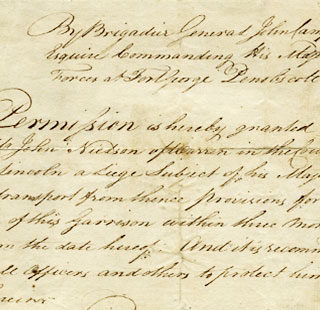 By Brigadier General John Cam
Esquire Commanding His Maj
Forces at Fort George Penobscot
Permission is hereby granted
John Neilson of Warren in the Coun
Lincoln a Liege Subject of his Maj
transport from thence Provisions for
of this Garrison within three mon
the date hereof. And it is recom
Officers and others to protect him